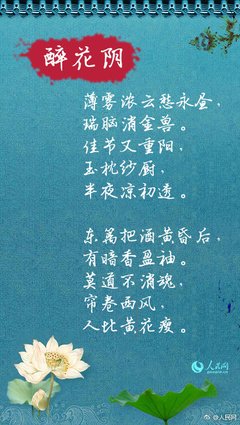 醉花阴
薄雾浓云愁永昼，
瑞脑消金兽。
佳节又重阳，
玉枕纱厨，
半夜凉初透。
东篱把酒黄昏后，
有暗香盈袖。
莫道不消魂，
帘卷西风，
人比黄花瘦。
人民网
@人民网